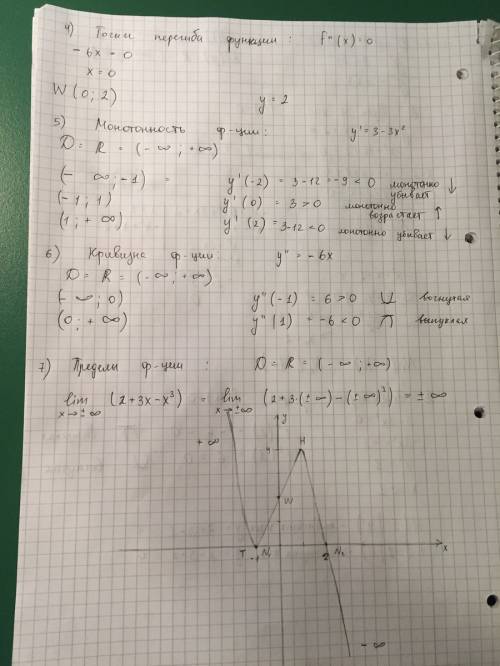 4) Точки перегиба функции: f''(x)=0
-6x = 0
x = 0
W(0; 2) y = 2
5) Монотонность ф-ции: y' = 3-3x²
D = R = (-∞; +∞)
(-∞; -1) = y'(-2) = 3-12 = -9 < 0 монотонно убывает ↓
(-1; 1) y'(0) = 3 > 0 монотонно возрастает ↑
(1; +∞) y'(2) = 3-12 < 0 монотонно убывает ↓
6) Кривизна ф-ции y'' = -6x
D = R = (-∞; +∞)
(-∞; 0) y''(-1) = 6 > 0 ∪ вогнутая
(0; +∞) y''(1) = -6 < 0 ∩ выпуклая
7) Пределы ф-ции: D = R = (-∞; +∞)
lim x→±∞ (2+3x-x³) = lim x→±∞ (2+3·(±∞)-(±∞)³) = ±∞
y
+∞
4
H
W
T -1 N₁ 2 N₂ x
-∞